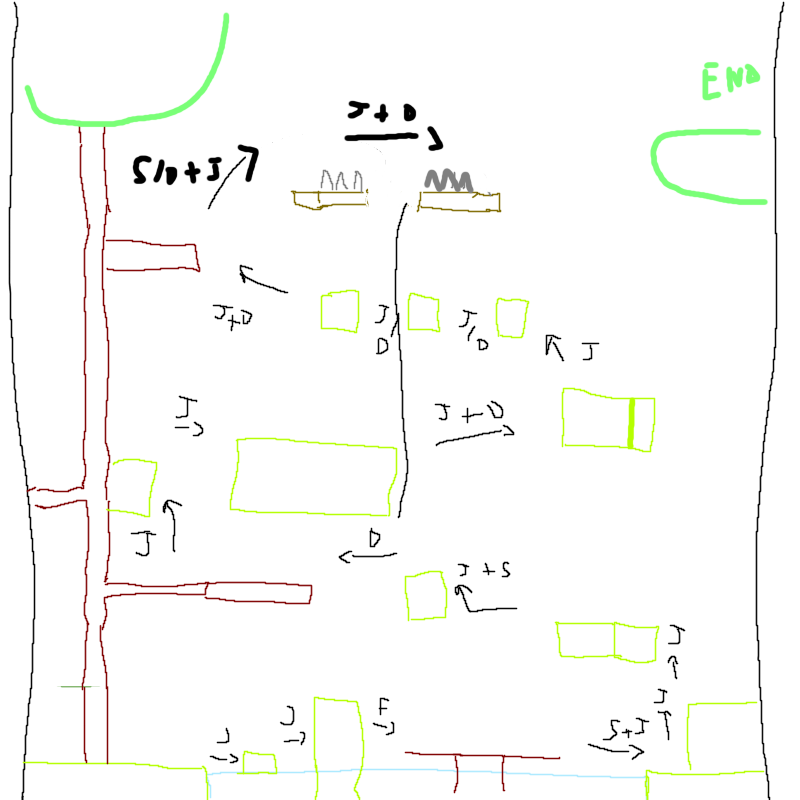 END
J + D
S/D + J
J+D
J/D
J/D
J
J
J + D
J
D
J + S
J
J
J
J
F
S+J